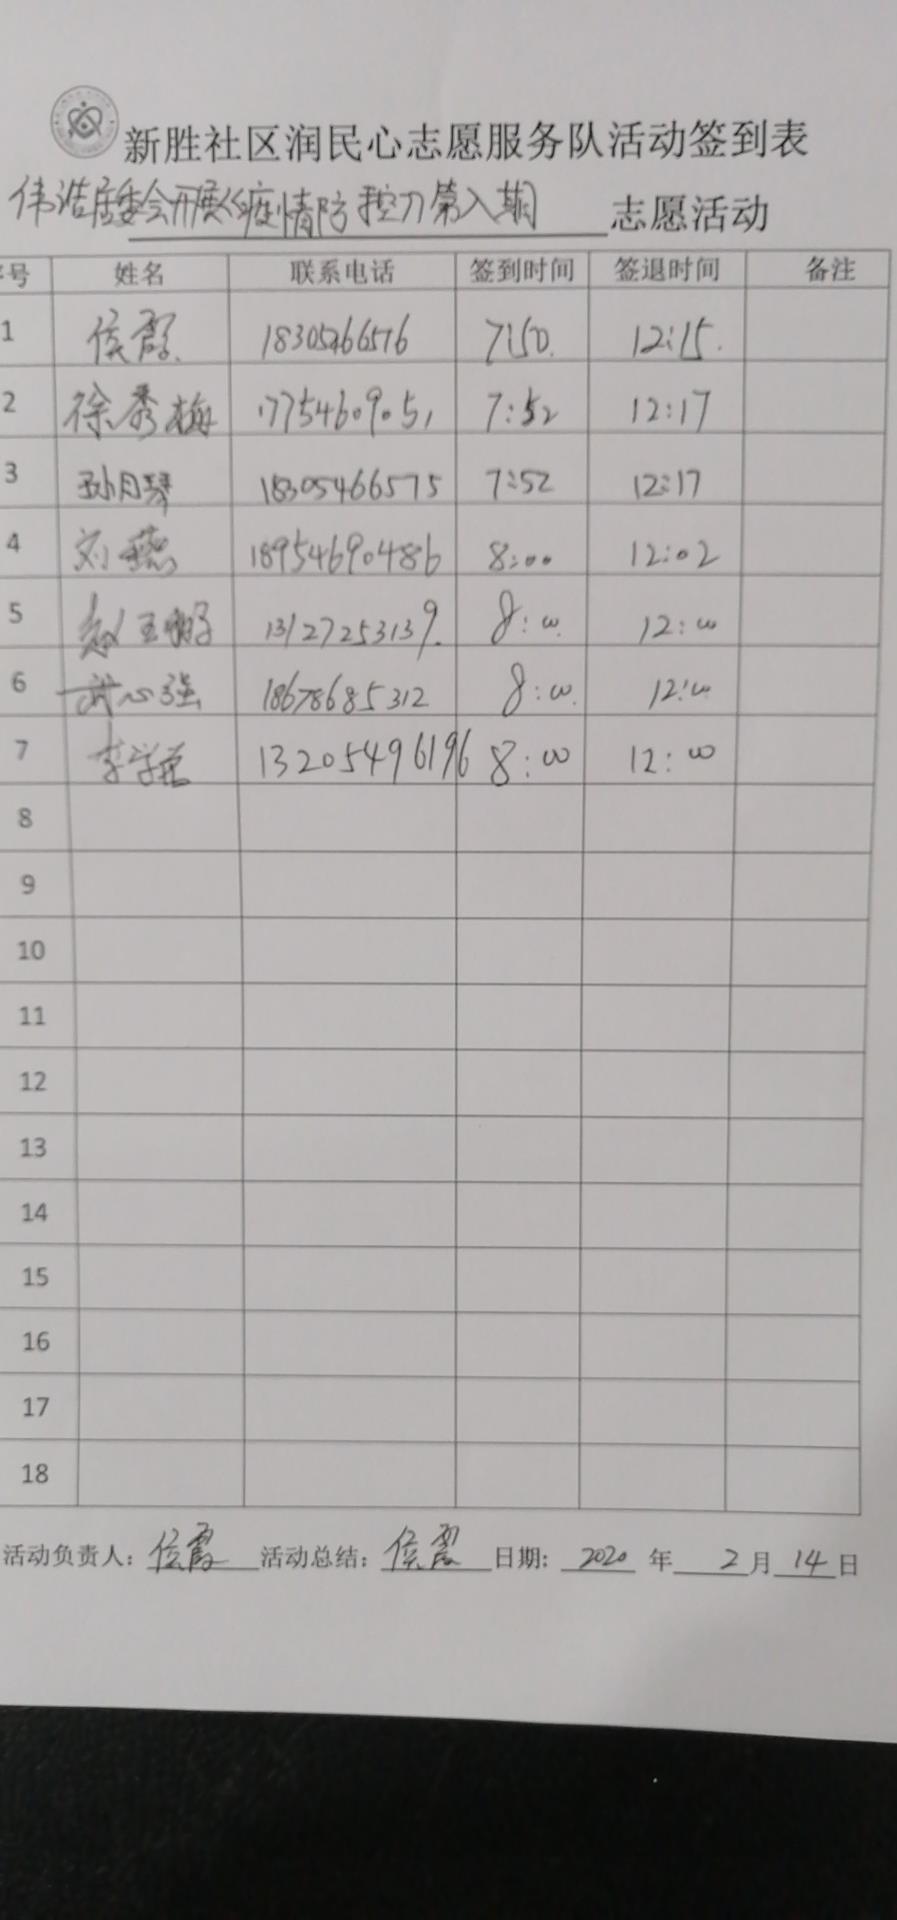 新胜社区润民心志愿服务队活动签到表
伟浩居委会开展 疫情防控 第八期 志愿活动
序号 姓名 联系电话 签到时间 签退时间 备注
1 侯霞 18305466576 7:50 12:15
2 徐秀梅 17754609051 7:52 12:17
3 孙月琴 18305466575 7:52 12:17
4 刘燕 18954690486 8:00 12:02
5 赵玉 13127253139 8:00 12:00
6 武心强 18678685312 8:00 12:00
7 李学 13205496196 8:00 12:00
8
9
10
11
12
13
14
15
16
17
18
活动负责人: 侯霞 活动总结: 侯霞 日期: 2020 年 2 月 14 日